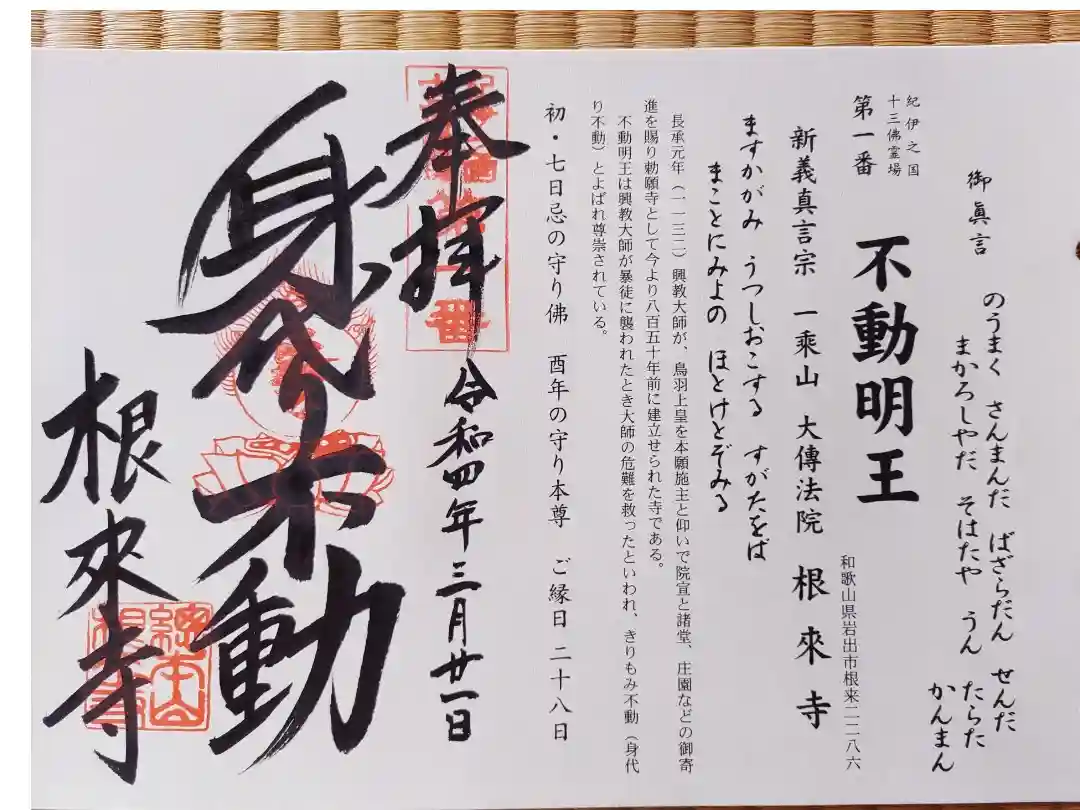 御眞言
のうまく さんまんだ ばざらだん せんだ
まかろしやだ そはたや うん たらた
かんまん
紀伊之国
十三佛霊場
第一番 不動明王
和歌山県岩出市根来二二八六
新義真言宗 一乘山 大傳法院 根來寺
ますかがみ うつしおこする すがたをば
まことにみよの ほとけとぞみる
長承元年(一一三二)興教大師が、鳥羽上皇を本願施主と仰いで院宣と諸堂、庄園などの御寄
進を賜り勅願寺として今より八百五十年前に建立せられた寺である。
不動明王は興教大師が暴徒に襲われたとき大師の危難を救ったといわれ、きりもみ不動(身代
り不動)とよばれ尊崇されている。
初・七日忌の守り佛 酉年の守り本尊 ご縁日 二十八日
奉拝 令和四年三月廿一日
身代り不動
根來寺